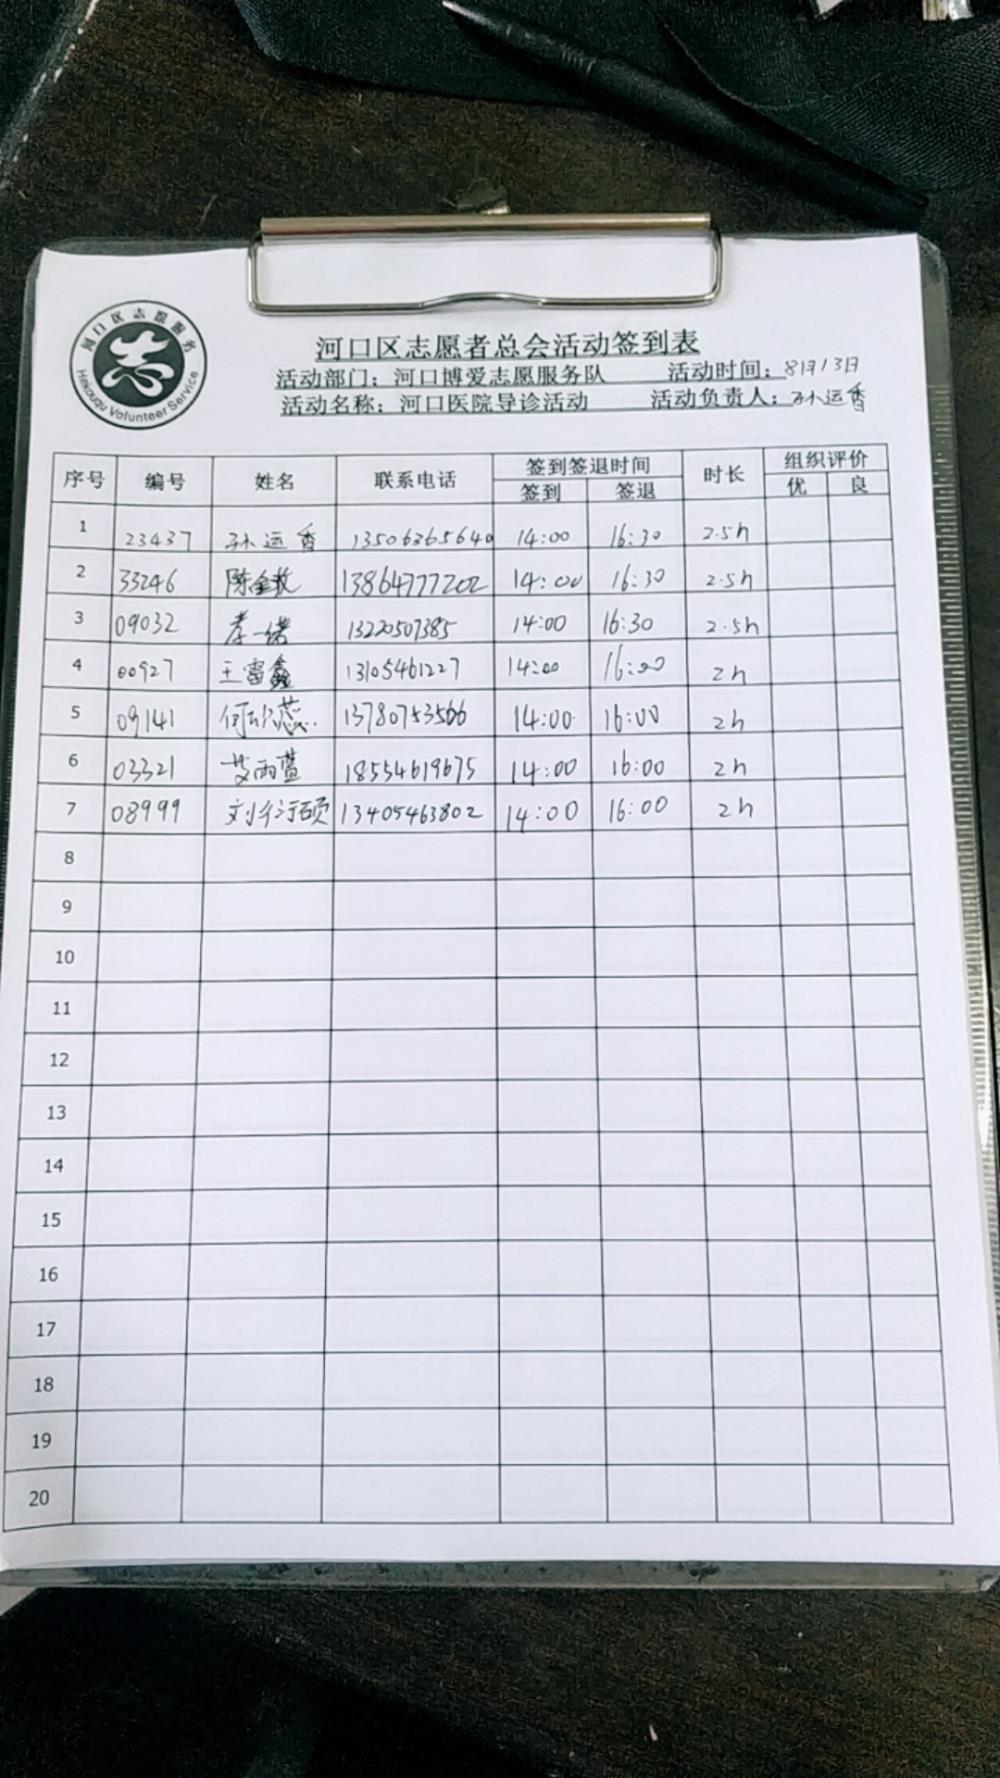 河口区志愿服务
Hekouqu Volunteer Service
河口区志愿者总会活动签到表
活动部门：河口博爱志愿服务队 活动时间：8月13日
活动名称：河口医院导诊活动 活动负责人：孙运香
序号 编号 姓名 联系电话 签到签退时间 时长 组织评价
签到 签退 优 良
1 23437 孙运香 13506365640 14:00 16:30 2.5h
2 33246 13864777202 14:00 16:30 2.5h
3 09032 13220507385 14:00 16:30 2.5h
4 00927 王雷鑫 13105461227 14:00 16:00 2h
5 09141 13780753566 14:00 16:00 2h
6 03321 艾雨萱 18554619675 14:00 16:00 2h
7 08999 13405463802 14:00 16:00 2h
8
9
10
11
12
13
14
15
16
17
18
19
20